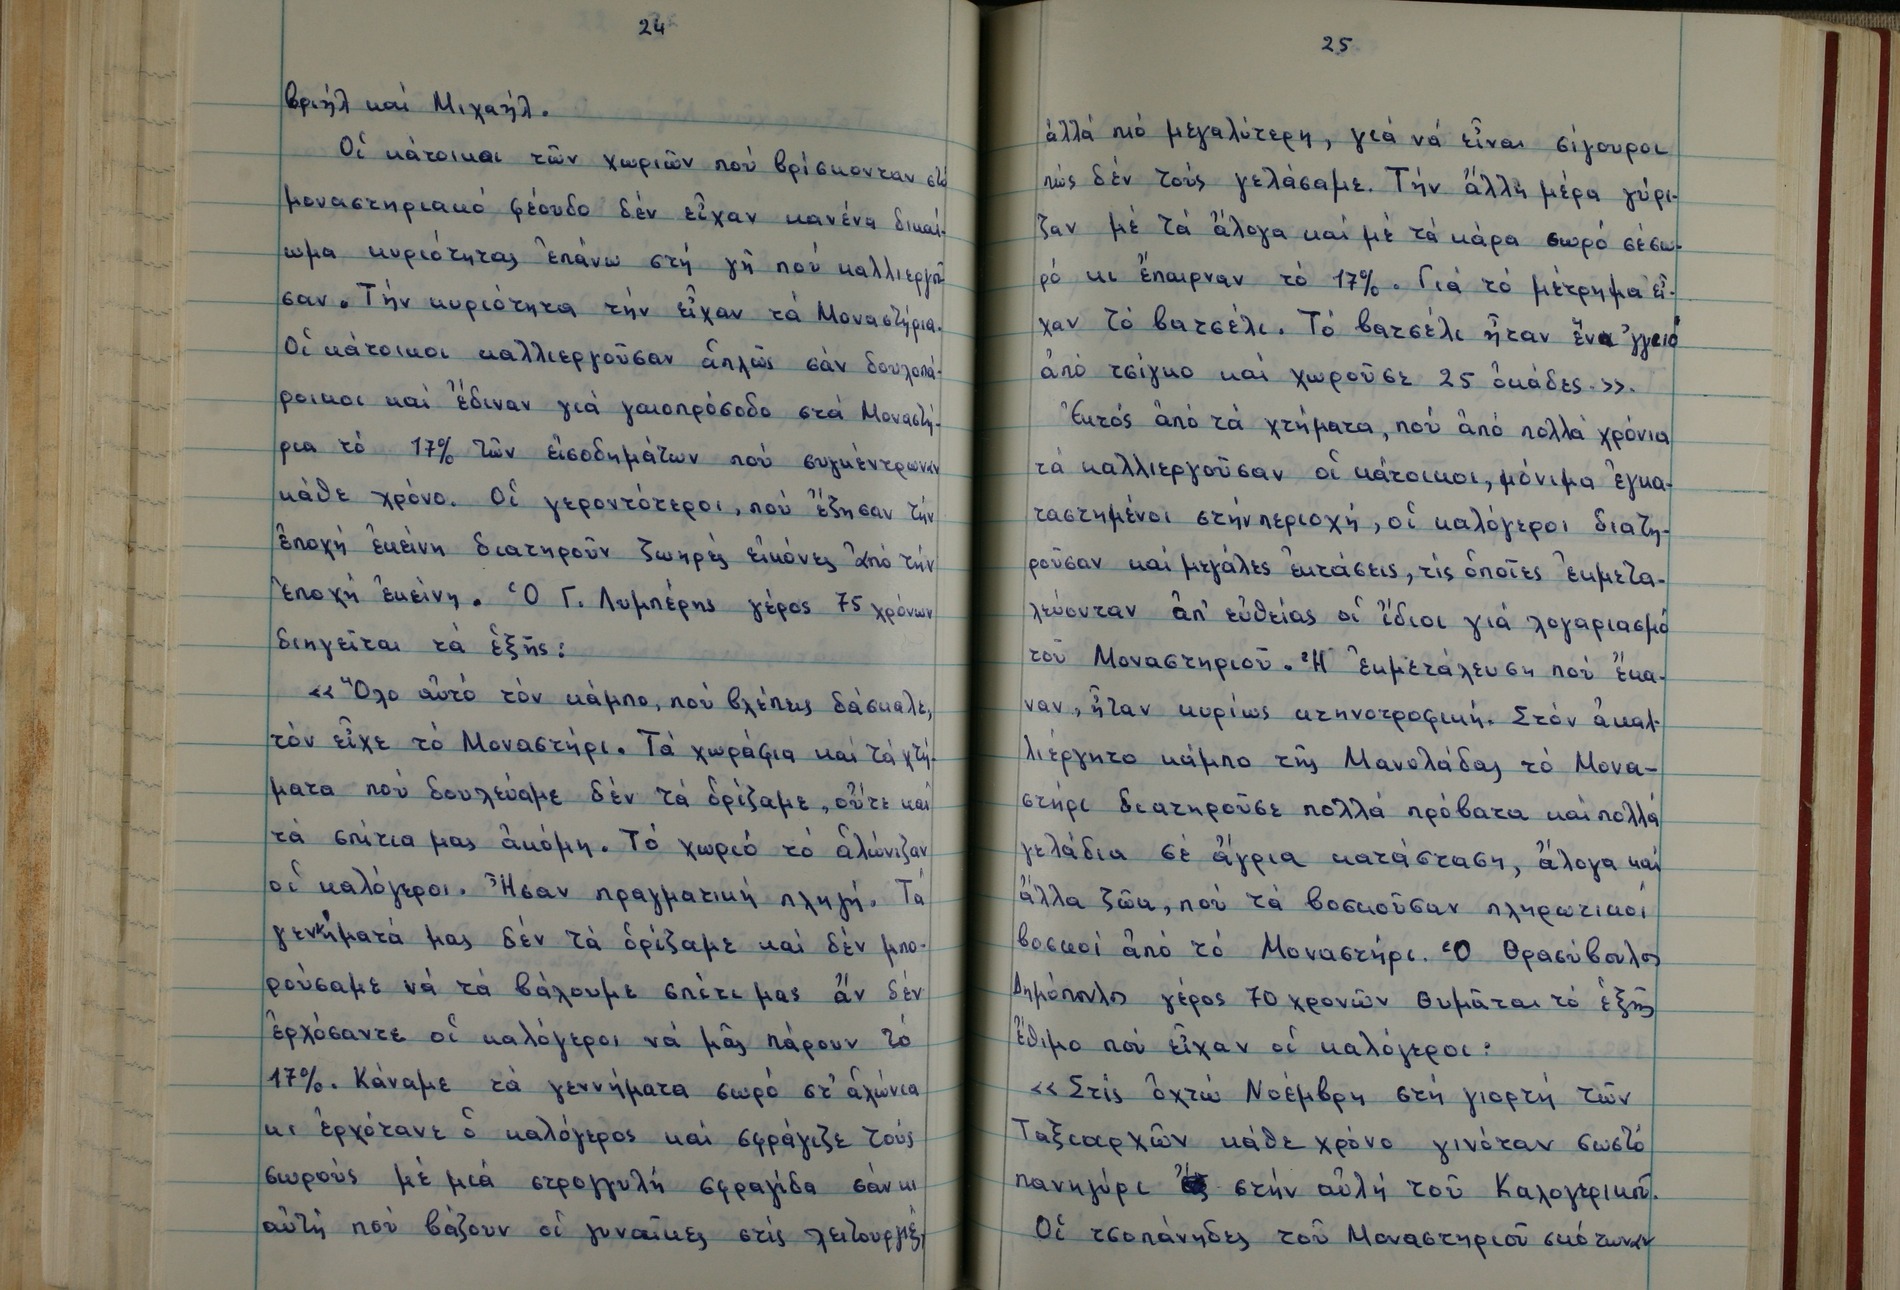 24
βριήλ καί Μιχαήλ.
Οἱ κάτοικοι τῶν χωριῶν πού βρίσκονταν στό
μοναστηριακό φέουδο δέν εἶχαν κανένα δικαί-
ωμα κυριότητας ἐπάνω στή γῆ πού καλλιεργοῦ
σαν. Τήν κυριότητα τήν εἶχαν τά Μοναστήρια.
Οἱ κάτοικοι καλλιεργοῦσαν ἁπλῶς σάν δουλοπά-
ροικοι καί ἔδιναν γιά γαιοπρόσοδο στά Μοναστή-
ρια τό 17% τῶν εἰσοδημάτων πού συγκέντρωναν
κάθε χρόνο. Οἱ γεροντότεροι, πού ἔζησαν τήν
ἐποχή ἐκείνη διατηροῦν ζωηρές εἰκόνες ἀπό τήν
ἐποχή ἐκείνη. Ὁ Γ. Λυμπέρης γέρος 75 χρόνων
διηγεῖται τά ἑξῆς:
«Ὅλο αὐτό τόν κάμπο, πού βλέπεις δάσκαλε,
τόν εἶχε τό Μοναστήρι. Τά χωράφια καί τά χτή-
ματα πού δουλεύαμε δέν τά ὁρίζαμε, οὔτε καί
τά σπίτια μας ἀκόμη. Τό χωριό τό ἁλώνιζαν
οἱ καλόγεροι. Ἦσαν πραγματική πληγή. Τά
γεννήματά μας δέν τά ὁρίζαμε καί δέν μπο-
ρούσαμε νά τά βάλουμε σπίτι μας ἄν δέν
ἐρχόσαντε οἱ καλόγεροι νά μᾶς πάρουν τό
17%. Κάναμε τά γεννήματα σωρό στ' ἁλώνια
κι ἐρχότανε ὁ καλόγερος καί σφράγιζε τούς
σωρούς μέ μιά στρογγυλή σφραγίδα σάν κι
αὐτή πού βάζουν οἱ γυναῖκες στίς λειτουργιές,
25
ἀλλά πιό μεγαλύτερη, γιά νά εἶναι σίγουροι
πώς δέν τούς γελάσαμε. Τήν ἄλλη μέρα γύρι-
ζαν μέ τά ἄλογα καί μέ τά κάρα σωρό σέ σω-
ρό κι ἔπαιρναν τό 17%. Γιά τό μέτρημα εἶ-
χαν τό βατσέλι. Τό βατσέλι ἦταν ἕνα ἀγγειό
ἀπό τσίγκο καί χωροῦσε 25 ὀκάδες.».
Ἐκτός ἀπό τά χτήματα, πού ἀπό πολλά χρόνια
τά καλλιεργοῦσαν οἱ κάτοικοι, μόνιμα ἐγκα-
ταστημένοι στήν περιοχή, οἱ καλόγεροι διατη-
ροῦσαν καί μεγάλες ἐκτάσεις, τίς ὁποῖες ἐκμετα-
λεύονταν ἀπ' εὐθείας οἱ ἴδιοι γιά λογαριασμό
τοῦ Μοναστηριοῦ. Ἡ ἐκμετάλευση πού ἔκα-
ναν, ἦταν κυρίως κτηνοτροφική. Στόν ἀκαλ-
λιέργητο κάμπο τῆς Μανολάδας τό Μονα-
στήρι διατηροῦσε πολλά πρόβατα καί πολλά
γελάδια σέ ἄγρια κατάσταση, ἄλογα καί
ἄλλα ζῶα, πού τά βοσκοῦσαν πληρωτικοί
βοσκοί ἀπό τό Μοναστήρι. Ὁ Θρασύβουλος
Δημόπουλος γέρος 70 χρονῶν θυμᾶται τό ἑξῆς
ἔθιμο πού εἶχαν οἱ καλόγεροι:
«Στίς ὀχτώ Νοέμβρη στή γιορτή τῶν
Ταξιαρχῶν κάθε χρόνο γινόταν σωστό
πανηγύρι στήν αὐλή τοῦ Καλογερικοῦ.
Οἱ τσοπάνηδες τοῦ Μοναστηριοῦ σκότωναν